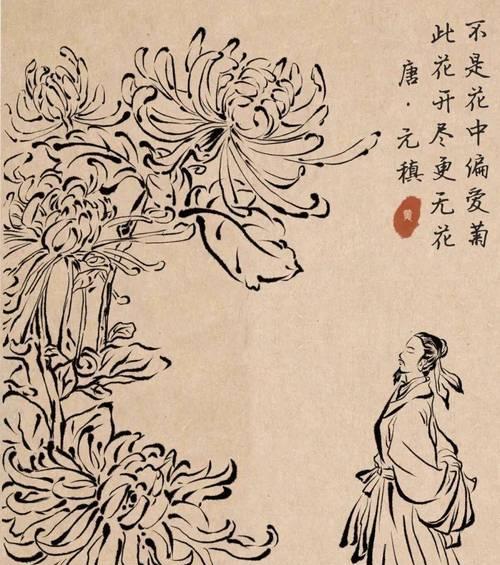 不是花中偏爱菊
此花开尽更无花
唐·元稹
黄